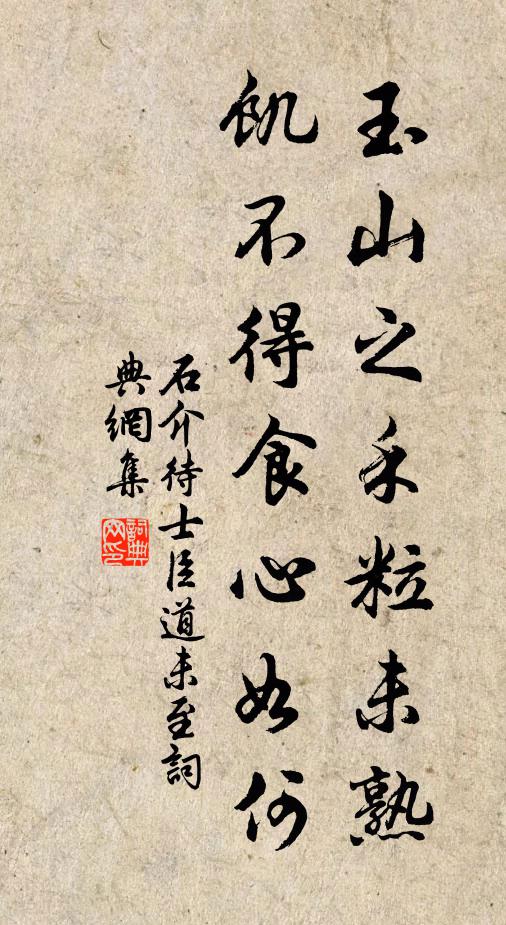 玉山之禾粒未熟
飢不得食心如何
石介待士臣道未至詞
典網集
詞典網印